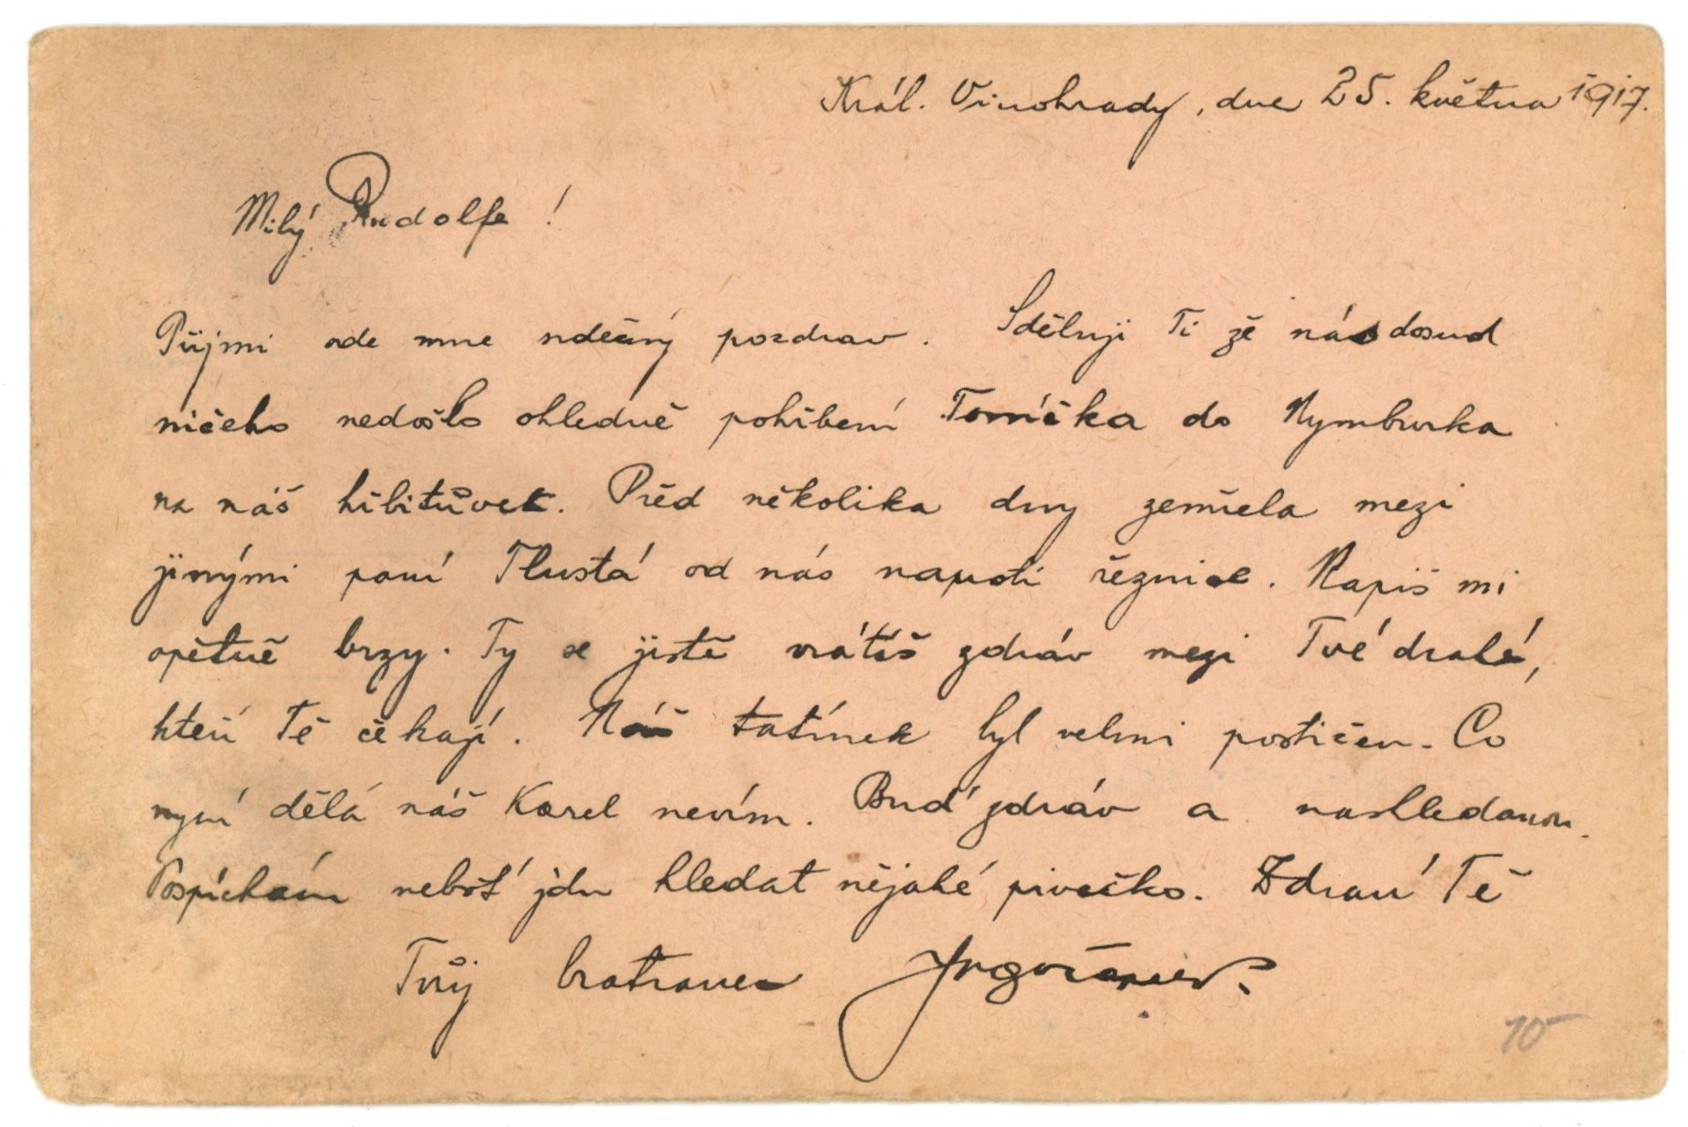 Král. Vinohrady, dne 25. května 1917.
Milý Rudolfe!
Přijmi ode mne srdečný pozdrav. Sděluji Ti že nás dosud
ničeho nedošlo ohledně pohřbení Toníčka do Nymburka
na náš hřbitůvek. Před několika dny zemřela mezi
jinými paní Tlustá od nás naproti řeznice. Napiš mi
opětně brzy. Ty se jistě vrátíš zdráv mezi Tvé drahé,
kteří Tě čekají. Náš tatínek byl velmi postižen. Co
nyní dělá náš Karel nevím. Buď zdráv a nashledanou.
Pospíchám neboť jdu hledat nějaké pivečko. Zdraví Tě
Tvůj bratranec
10